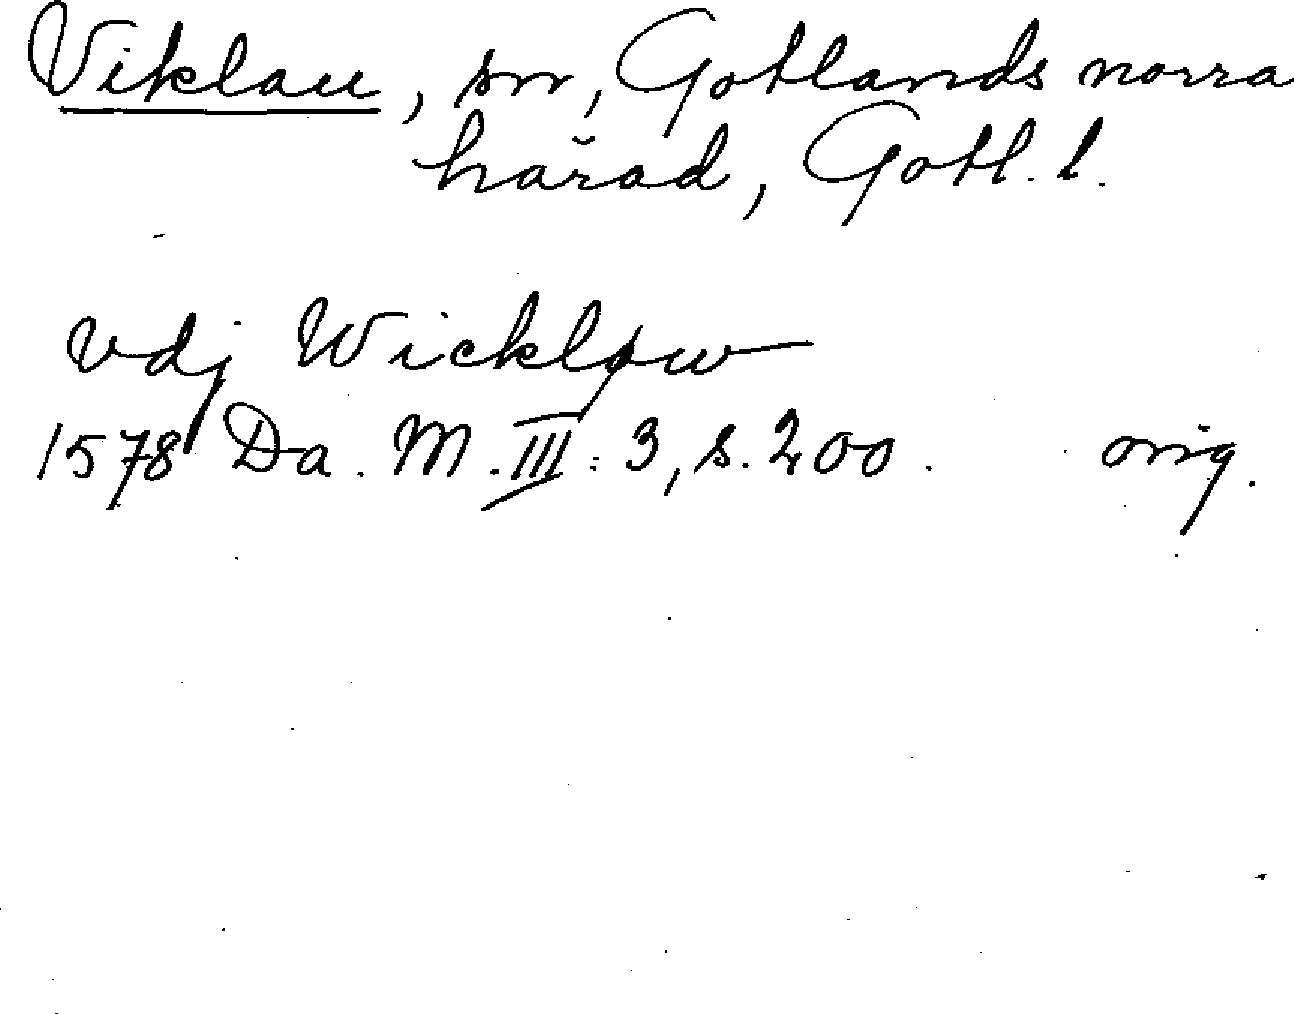 Viklau, sn, Gotlands norra
härad, Gotl. l.
vdj Wickløw
1578 Da. M. III: 3, s. 200. orig.